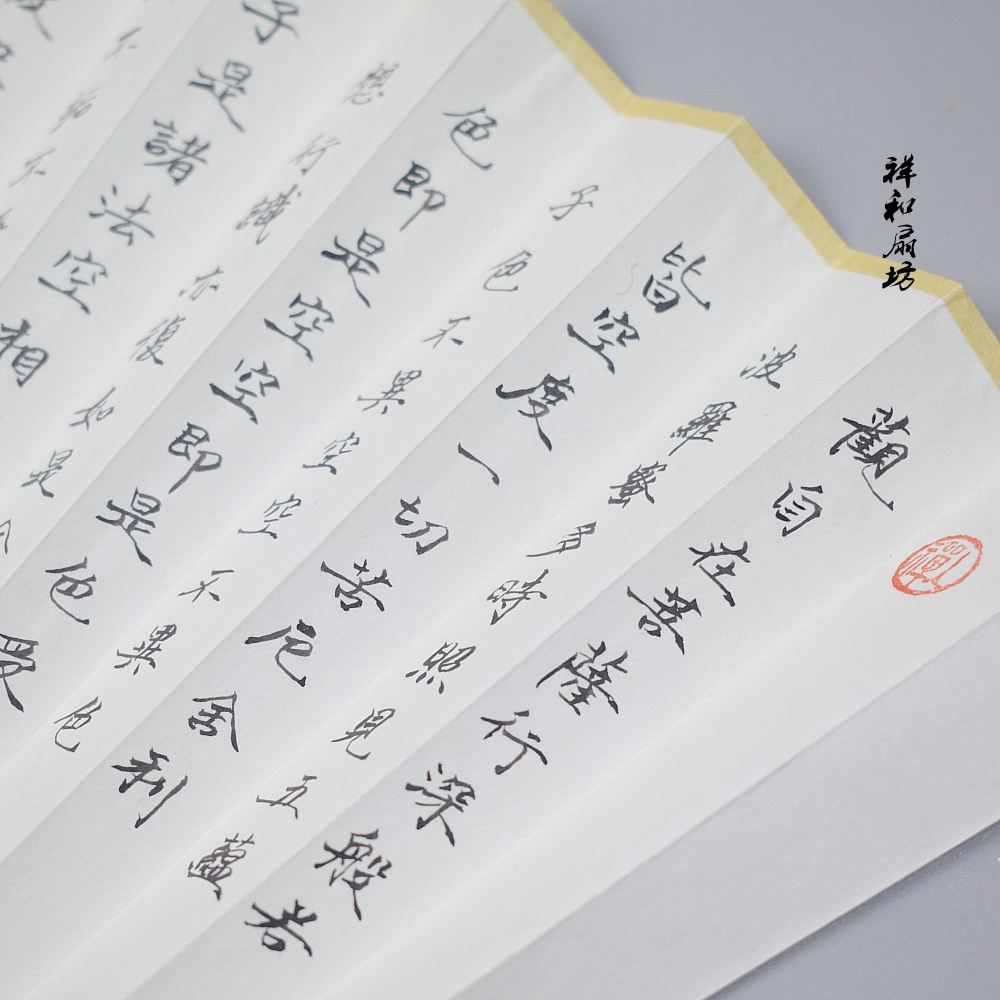 祥和扇坊
觀自在菩薩行深般若
波羅蜜多時照見五蘊
皆空度一切苦厄舍利
子色不異空空不異色
色即是空空即是色受
想行識亦復如是
子是諸法空相
不垢不